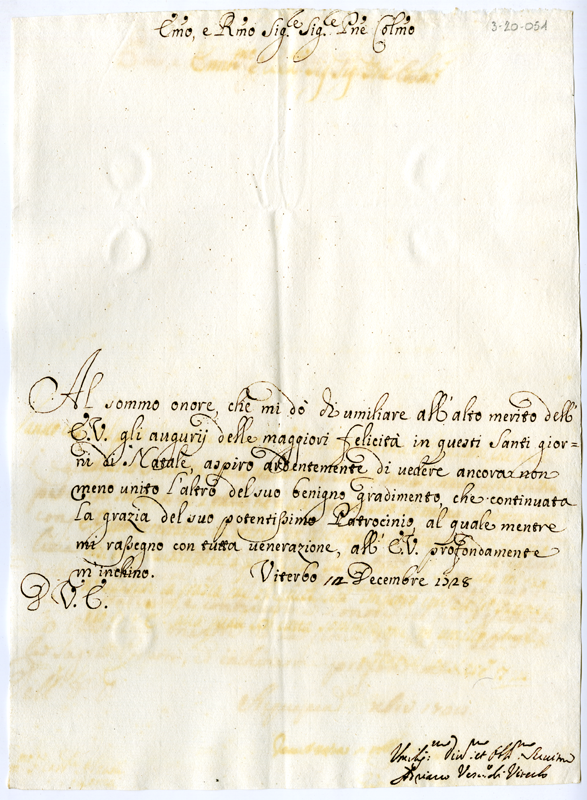 3-20-051
Emo, e Rmo Sig.le Sig.le Pne Colmo
Al sommo onore, che mi dò di umiliare all'alto merito dell'
E.V. gli augurij delle maggiori felicità in questi Santi gior=
ni di Natale, aspiro ardentemente di vedere ancora non
meno unito l'altro del suo benigno gradimento, che continuata
la grazia del suo potentissimo Patrocinio, al quale mentre
mi rassegno con tutta venerazione, all'E.V. profondamente
m'inchino. Viterbo 14 Decembre 1728
D V. E.
Umiliss.mo Div.mo et Obb.mo Servitore
Adriano Vesc.o di Viterbo